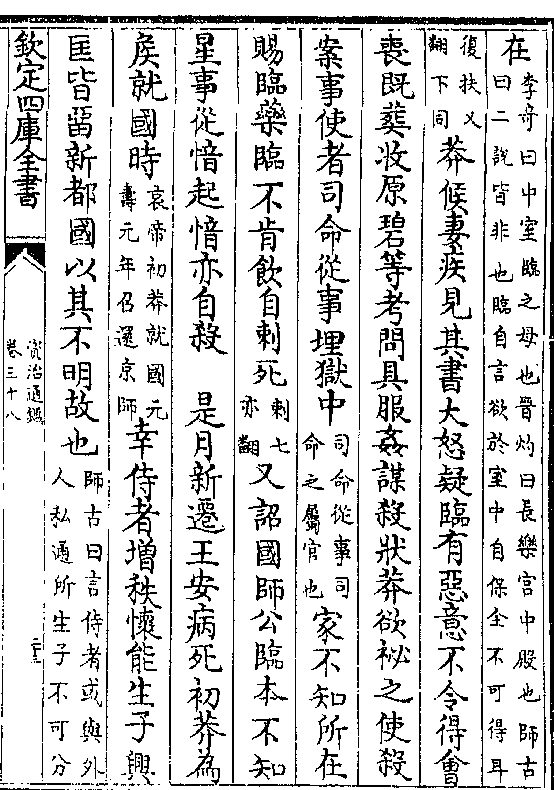 在李奇曰中室臨之母也晉灼曰長樂宫中殿也師古
曰二說皆非也臨自言欲於室中自保全不可得耳
復扶又
翻下同莽候妻疾見其書大怒疑臨有惡意不令得會
喪既葬收原碧等考問具服姦謀殺狀莽欲祕之使殺
案事使者司命從事埋獄中司命從事司
命之屬官也家不知所在
賜臨藥臨不肯飲自刺死刺七
亦翻又詔國師公臨本不知
星事從愔起愔亦自殺　是月新遷王安病死初莽為
侯就國時哀帝初莽就國元
壽元年召還京師幸侍者增秩懷能生子興
匡皆留新都國以其不明故也師古曰言侍者或與外
人私通所生子不可分
欽定四庫全書
資治通鑑
卷三十八